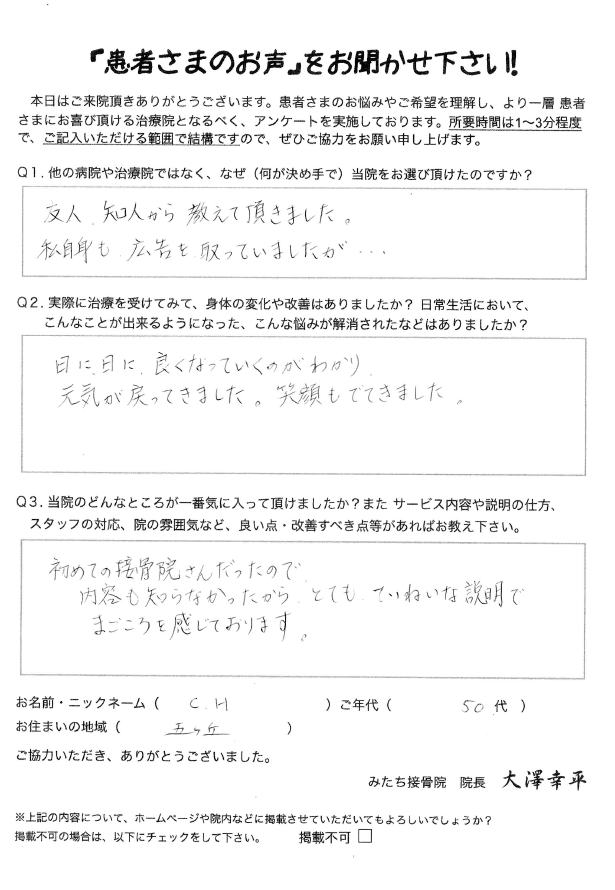 「患者さまのお声」をお聞かせ下さい!
本日はご来院頂きありがとうございます。患者さまのお悩みやご希望を理解し、より一層 患者
さまにお喜び頂ける治療院となるべく、アンケートを実施しております。所要時間は1〜3分程度
で、ご記入いただける範囲で結構ですので、ぜひご協力をお願い申し上げます。
Q1.他の病院や治療院ではなく、なぜ(何が決め手で)当院をお選び頂けたのですか?
友人、知人から 教えて頂きました。
私自身も 広告を 取っていましたが・・・
Q2.実際に治療を受けてみて、身体の変化や改善はありましたか? 日常生活において、
こんなことが出来るようになった、こんな悩みが解消されたなどはありましたか?
日に、日に、良くなっていくのが わかり
元気が戻ってきました。笑顔もでてきました。
Q3.当院のどんなところが一番気に入って頂けましたか?また サービス内容や説明の仕方、
スタッフの対応、院の雰囲気など、良い点・改善すべき点等があればお教え下さい。
初めての接骨院さんだったので
内容も知らなかったから、とても、ていねいな説明で
まごころを感じております。
お名前・ニックネーム( C.H )ご年代( 50 代 )
お住まいの地域( 五ヶ丘 )
ご協力いただき、ありがとうございました。
みたち接骨院 院長 大澤幸平
※上記の内容について、ホームページや院内などに掲載させていただいてもよろしいでしょうか?
掲載不可の場合は、以下にチェックをして下さい。 掲載不可 □